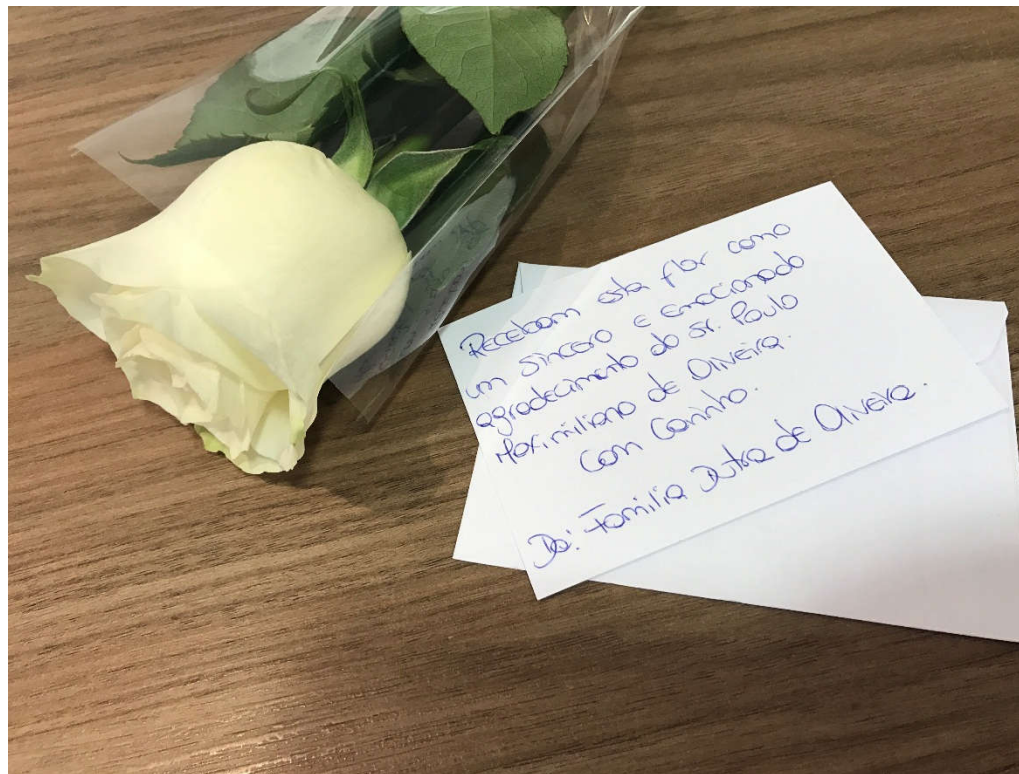 Recebam esta flor como
um sincero e emocionado
agradecimento do Sr. Paulo
Maximiliano de Oliveira.
Com Carinho.
Da: Família Dutra de Oliveira.